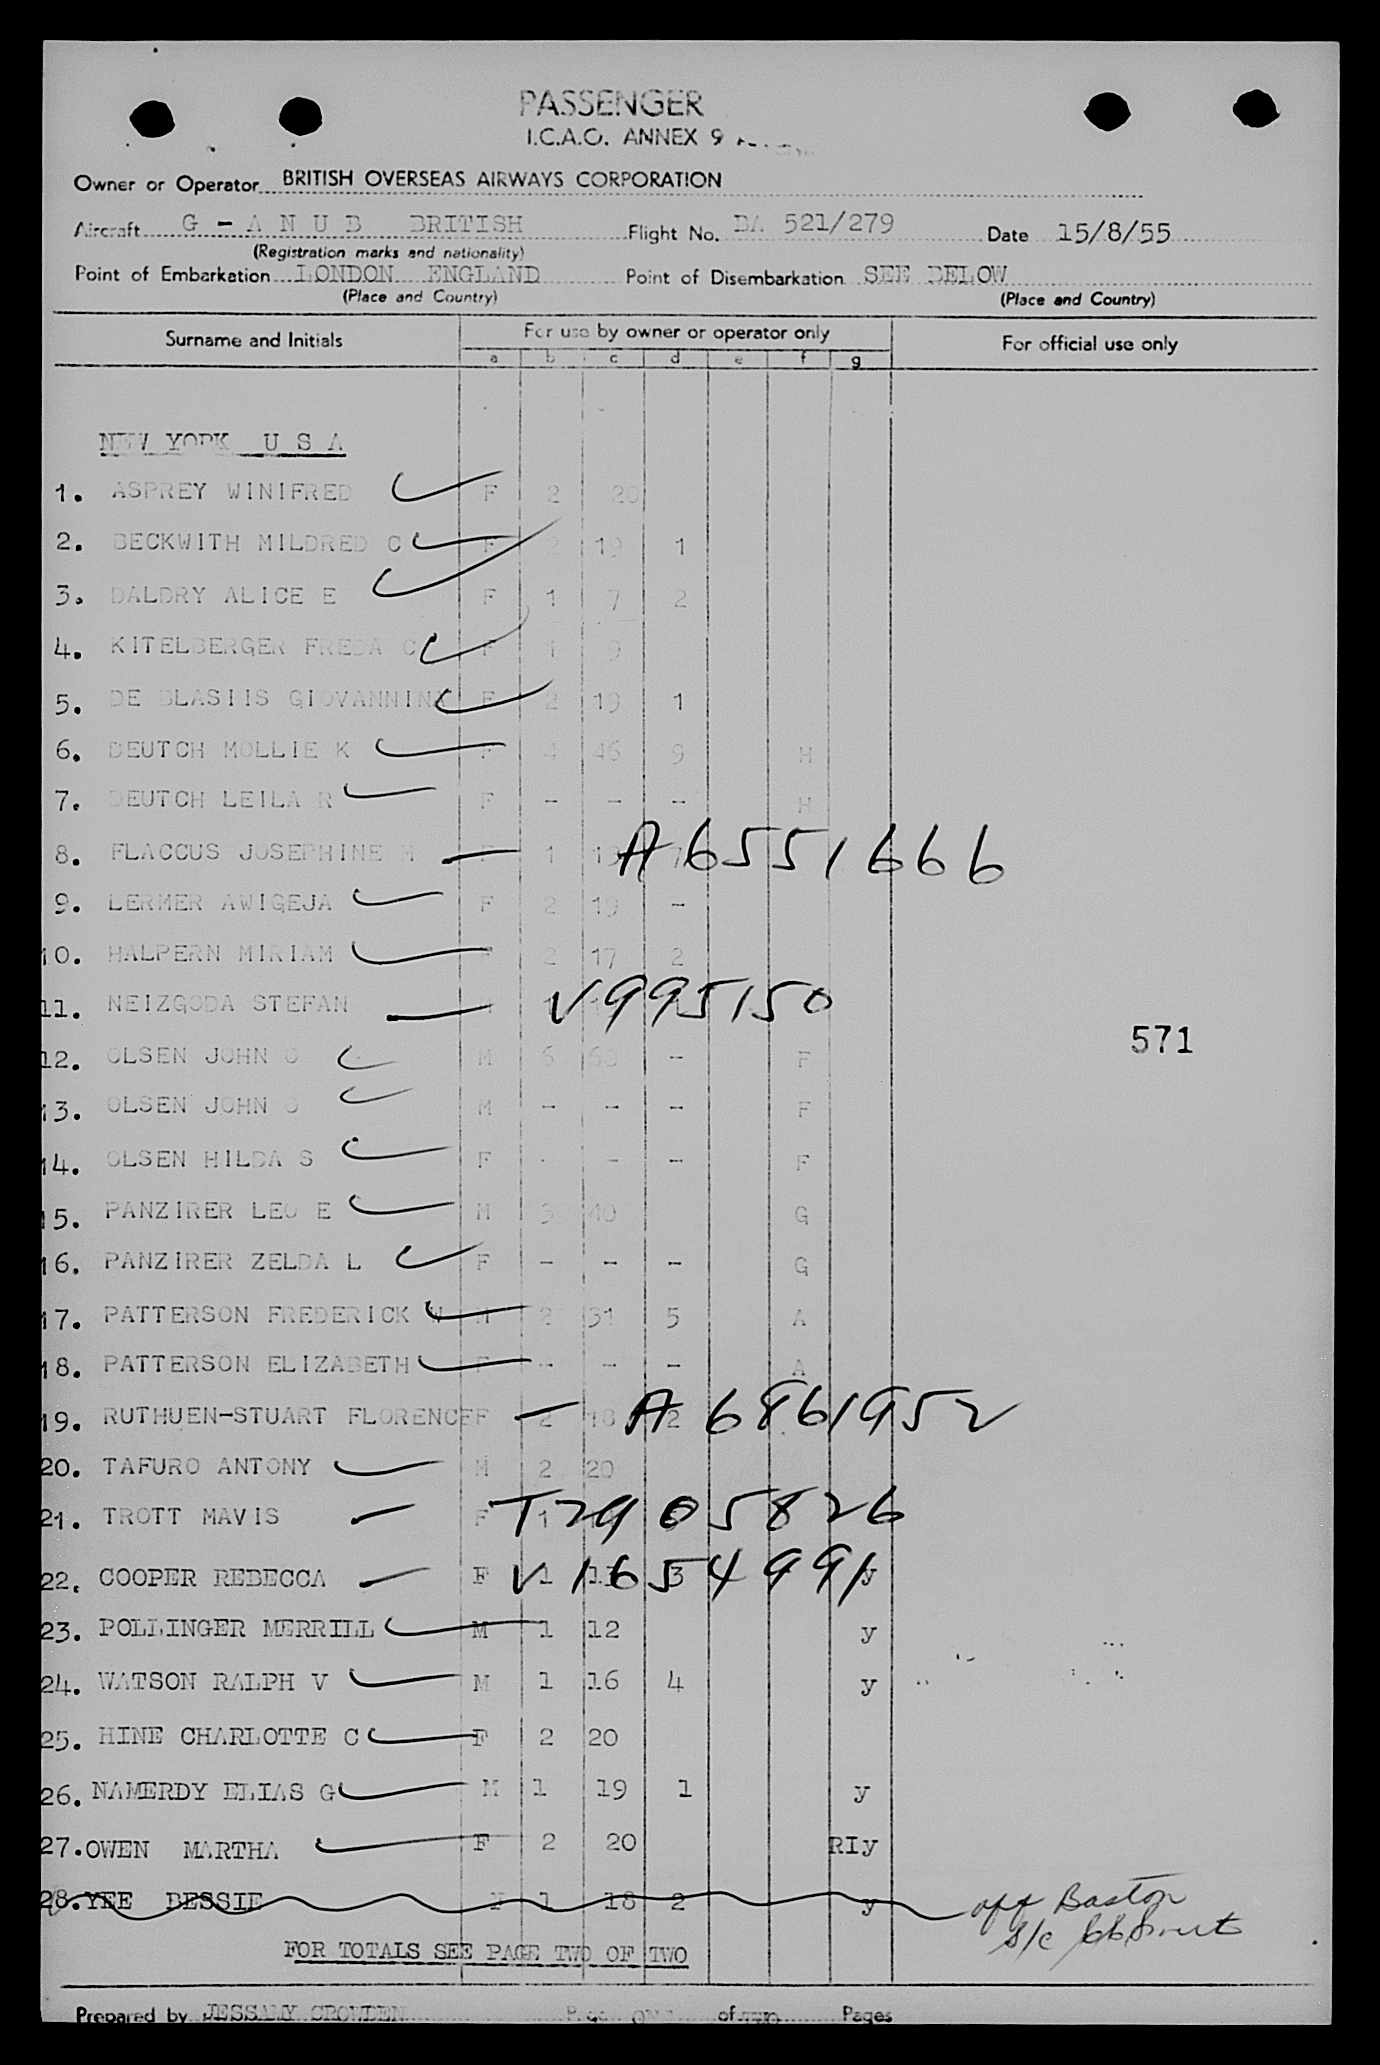 PASSENGER
I.C.A.O. ANNEX 9
Owner or Operator BRITISH OVERSEAS AIRWAYS CORPORATION
Aircraft G - A N U B BRITISH Flight No. BA 521/279 Date 15/8/55
(Registration marks and nationality)
Point of Embarkation LONDON ENGLAND Point of Disembarkation SEE BELOW
(Place and Country) (Place and Country)
Surname and Initials For use by owner or operator only For official use only
a b c d e f g
NEW YORK U S A
1. ASPREY WINIFRED F 2 20
2. BECKWITH MILDRED C F 2 19 1
3. DALDRY ALICE E F 1 7 2
4. KITELBERGER FREDA C F 1 9
5. DE BLASIIS GIOVANNINA F 2 19 1
6. DEUTCH MOLLIE K F 4 46 9 H
7. DEUTCH LEILA R F - - - H
8. FLACCUS JOSEPHINE M F 1 A6551666
9. LERMER AWIGEJA F 2 19 -
10. HALPERN MIRIAM F 2 17 2
11. NEIZGODA STEFAN V995150
12. OLSEN JOHN O M 6 60 - F
571
13. OLSEN JOHN O M - - - F
14. OLSEN HILDA S F - - - F
15. PANZIRER LEO E M 3 40 G
16. PANZIRER ZELDA L F - - - G
17. PATTERSON FREDERICK W M 2 31 5 A
18. PATTERSON ELIZABETH F - - - A
19. RUTHUEN-STUART FLORENCE F 2 18 2 A6861952
20. TAFURO ANTONY M 2 20
21. TROTT MAVIS F 1 T2905826
22. COOPER REBECCA F 1 3 y V1654991
23. POLLINGER MERRILL M 1 12 y
24. WATSON RALPH V M 1 16 4 y
25. HINE CHARLOTTE C F 2 20
26. NAMERDY ELIAS G M 1 19 1 y
27. OWEN MARTHA F 2 20 RIy
28. YEE BESSIE F 1 18 2 y off Boston
s/c
FOR TOTALS SEE PAGE TWO OF TWO
Prepared by JESSAMY CROWDEN Page ONE of TWO Pages